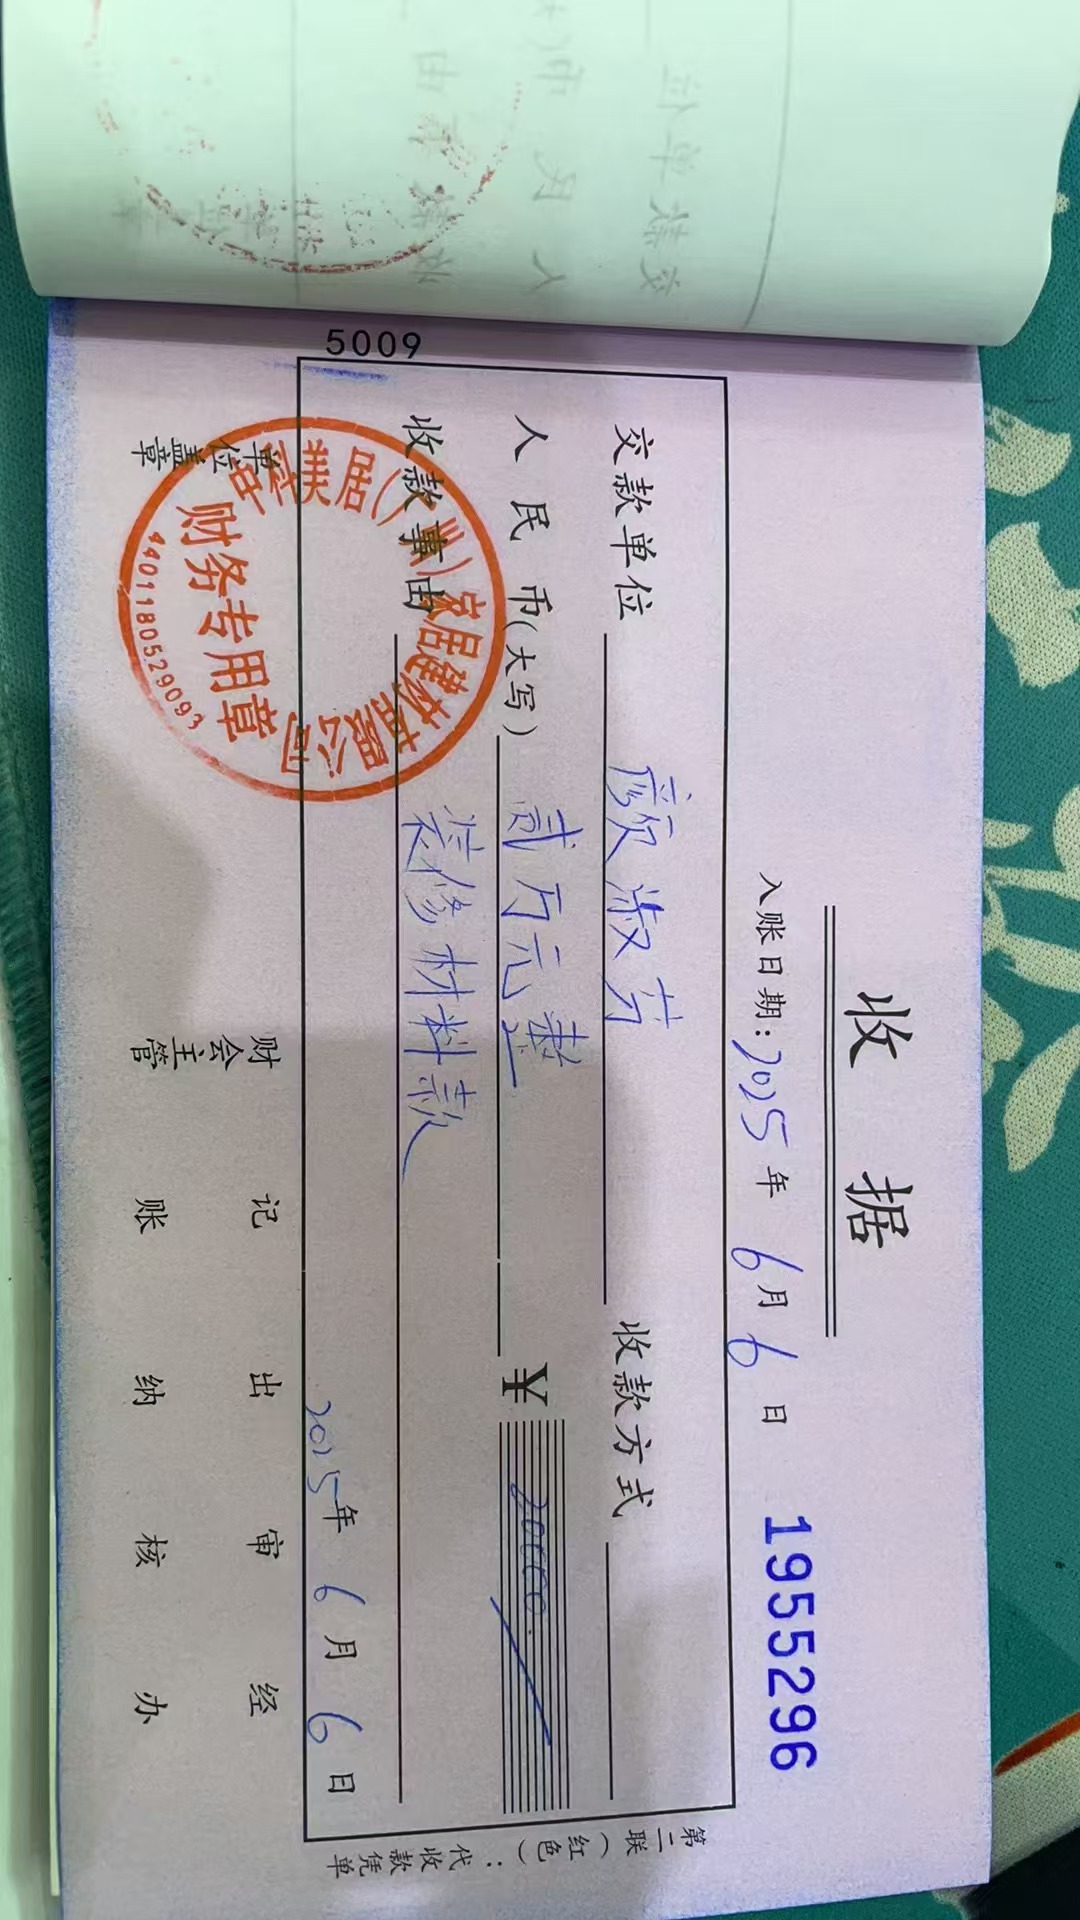 收 据
入账日期：2025年 6月 6日
1955296
交款单位 颜淑芳 收款方式
人民币（大写） 贰万元整 ¥ 20000.
收款事由 装修材料款
2025年 6月 6日
单位盖章 财会主管 记账 出纳 审核 经办
5009
第二联（红色）：代收款凭单
居美
家居建材
公司
财务专用章
4401180529093